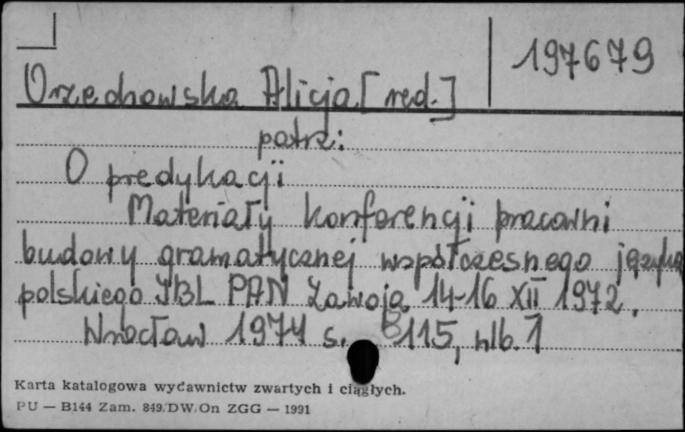 197679
Orzechowska Alicja [red.]
patrz:
O predykacji
Materiały konferencji pracowni
budowy gramatycznej współczesnego języka
polskiego IBL PAN Zawoja 14-16 XII 1972.
Wrocław 1974 s. 115, nlb. 1
Karta katalogowa wydawnictw zwartych i ciągłych.
PU — B144 Zam. 849/DW/On ZGG — 1991